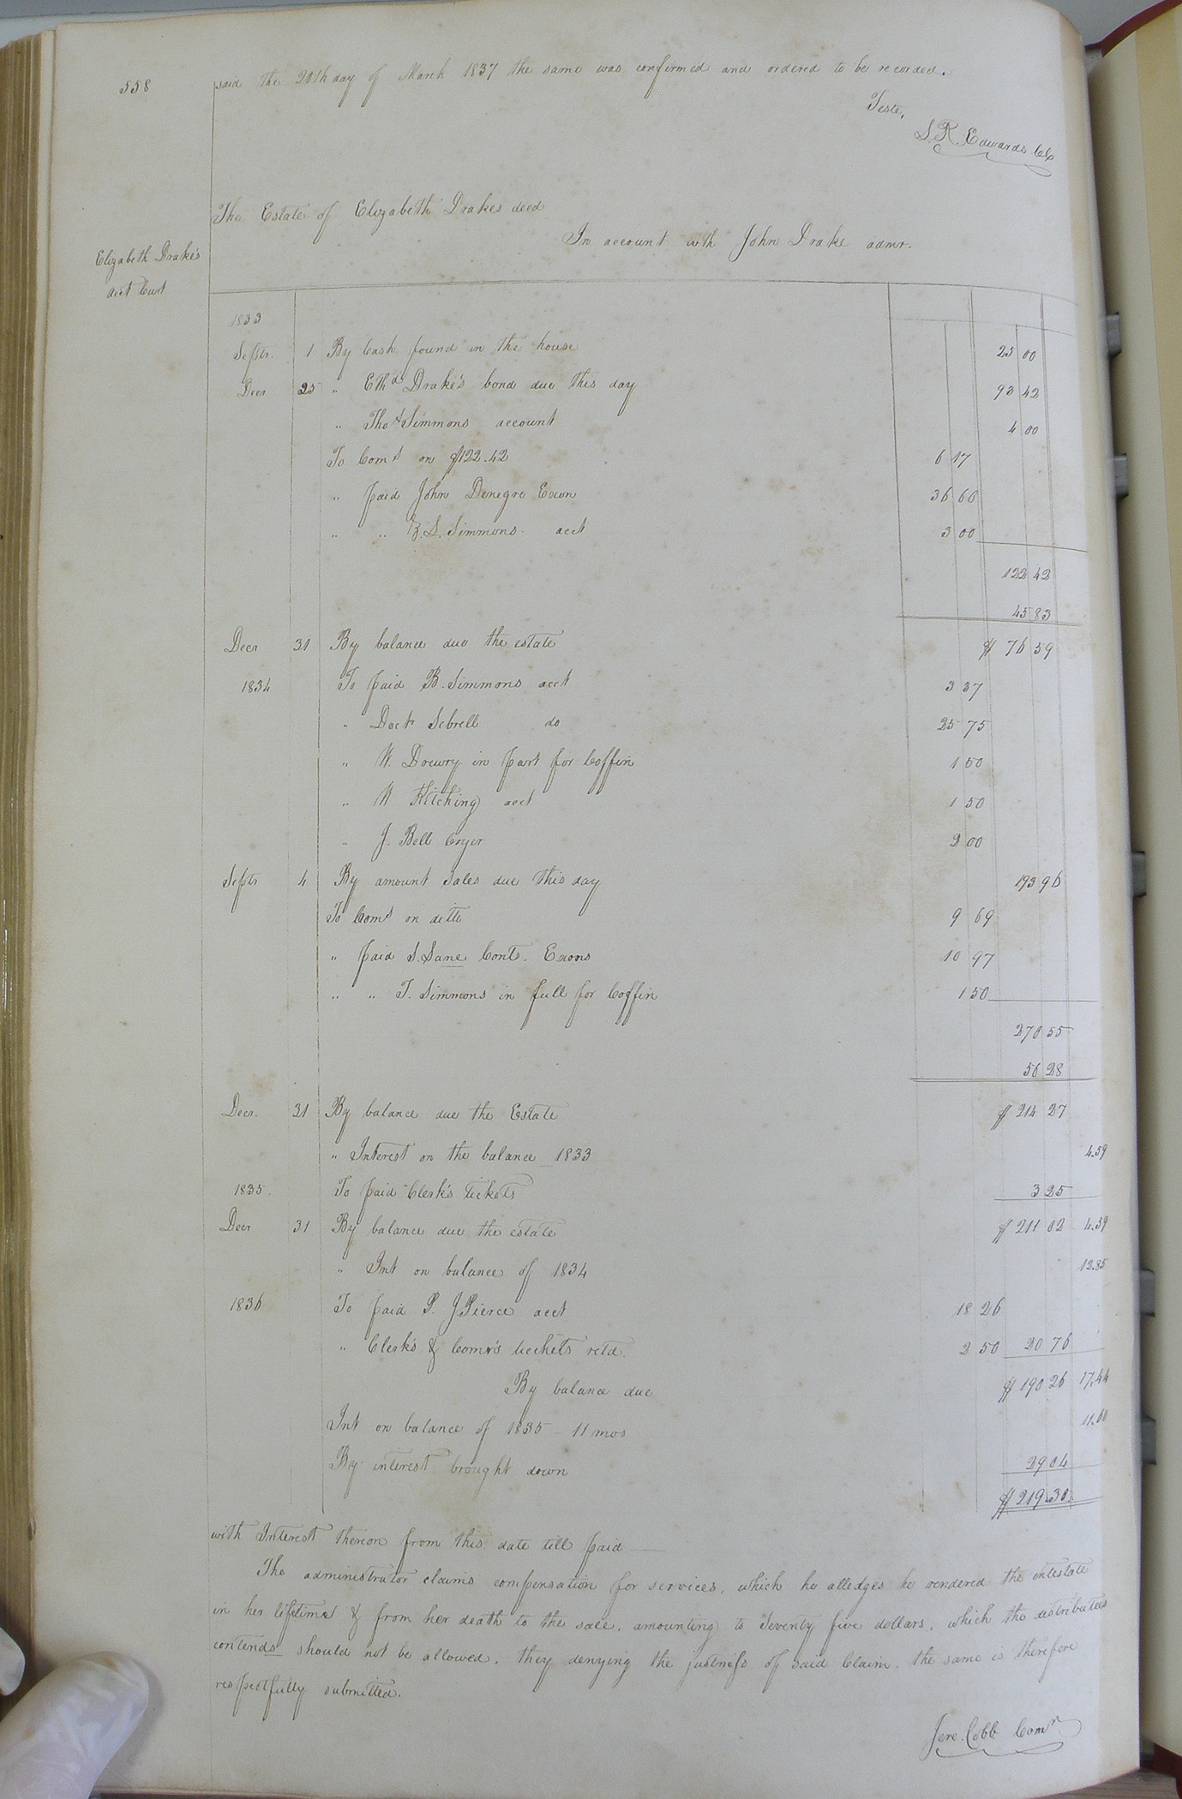 558
said the 20th day of March 1837 the same was confirmed and ordered to be recorded.
Teste,
L. R. Edwards Clk
The Estate of Elizabeth Drakes decd
In account with John Drake admr.
Elizabeth Drake's
acct Curt
1833
Septr. 1 By Cash found in the house 25 00
Decr 25 " Eth Drake's bond due this day 93 42
" Thos Simmons account 4 00
To Coms on $122.42 6 17
" paid John Denegre Exon 36 66
" " B. S. Simmons acct 3 00
122 42
45 83
Decr 31 By balance due the estate $ 76 59
1834 To paid B. Simmons acct 3 37
" Doct Sebrell do 25 75
" N. Drewry in part for Coffin 1 50
" N Kitching acct 1 50
" J. Bell Cryer 2 00
Septr 4 By amount Sales due this day 193 96
To Coms on ditto 9 69
" paid S. Lane Cont. Exons 10 97
" " T. Simmons in full for Coffin 1 50
270 55
56 28
Decr. 31 By balance due the Estate $ 214 27
" Interest on the balance 1833 4.59
1835. To paid Clerk's tickets 3 25
Decr 31 By balance due the estate $ 211 02 4.59
" Int on balance of 1834 12.85
1836 To paid P. J Pierce acct 18 26
" Clerk's & Comr's tickets retd. 2 50 20 76
By balance due $ 190 26 17.44
Int on balance of 1835 - 11 mos 11.60
By interest brought down 29 04
$ 219.30.
with Interest thereon from this date till paid
The administrator claims compensation for services, which he alledges he rendered the intestate
in her lifetime & from her death to the sale, amounting to Seventy five dollars, which the distributees
contends should not be allowed, they denying the justness of said Claim, the same is therefore
respectfully submitted.
Jere. Cobb Comr